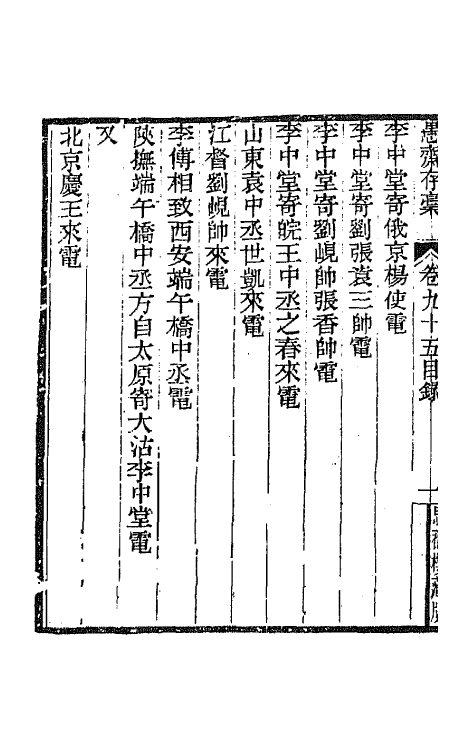 愚齋存稾 卷九十五目錄 一
李中堂寄俄京楊使電
李中堂寄劉張袁三帥電
李中堂寄劉峴帥張香帥電
李中堂寄皖王中丞之春來電
山東袁中丞世凱來電
江督劉峴帥來電
李傅相致西安端午橋中丞電
陝撫端午橋中丞方自太原寄大沽李中堂電
又
北京慶王來電